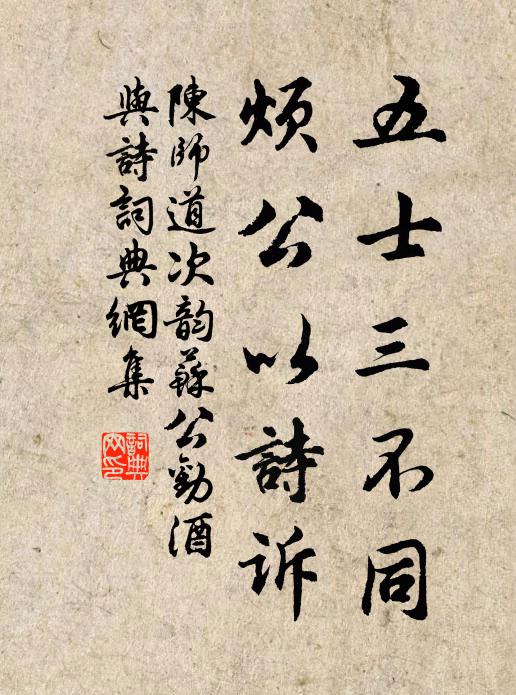 五士三不同
煩公以詩訴
陳師道次韵蘇公勸酒
與詩詞典網集
詞典網印